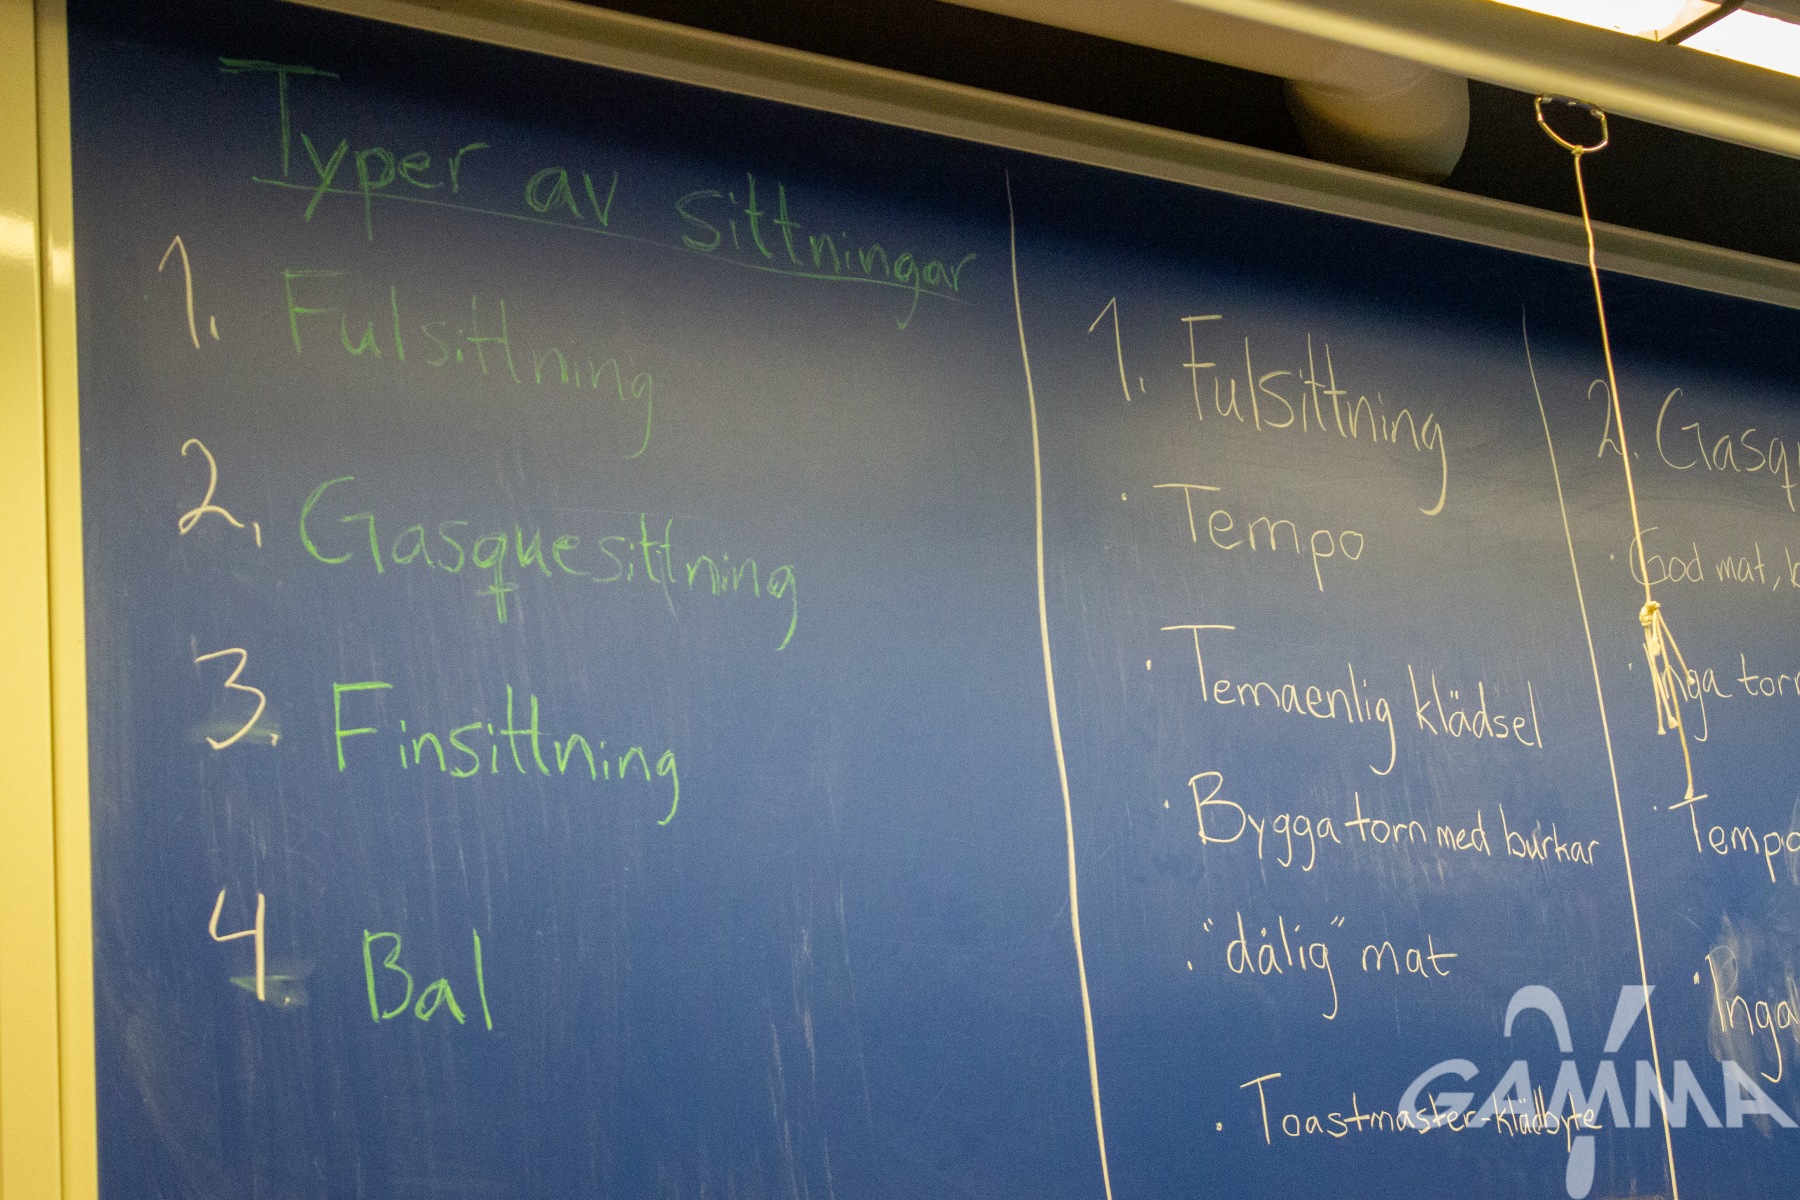 Typer av sittningar
1. Fulsittning
2. Gasquesittning
3. Finsittning
4. Bal
1. Fulsittning
· Tempo
· Temaenlig klädsel
· Bygga torn med burkar
· "dålig" mat
· Toastmaster-klädbyte
2. Gasq
· God mat, b
· Inga torn
· Tempo
· Inga
GAMMA